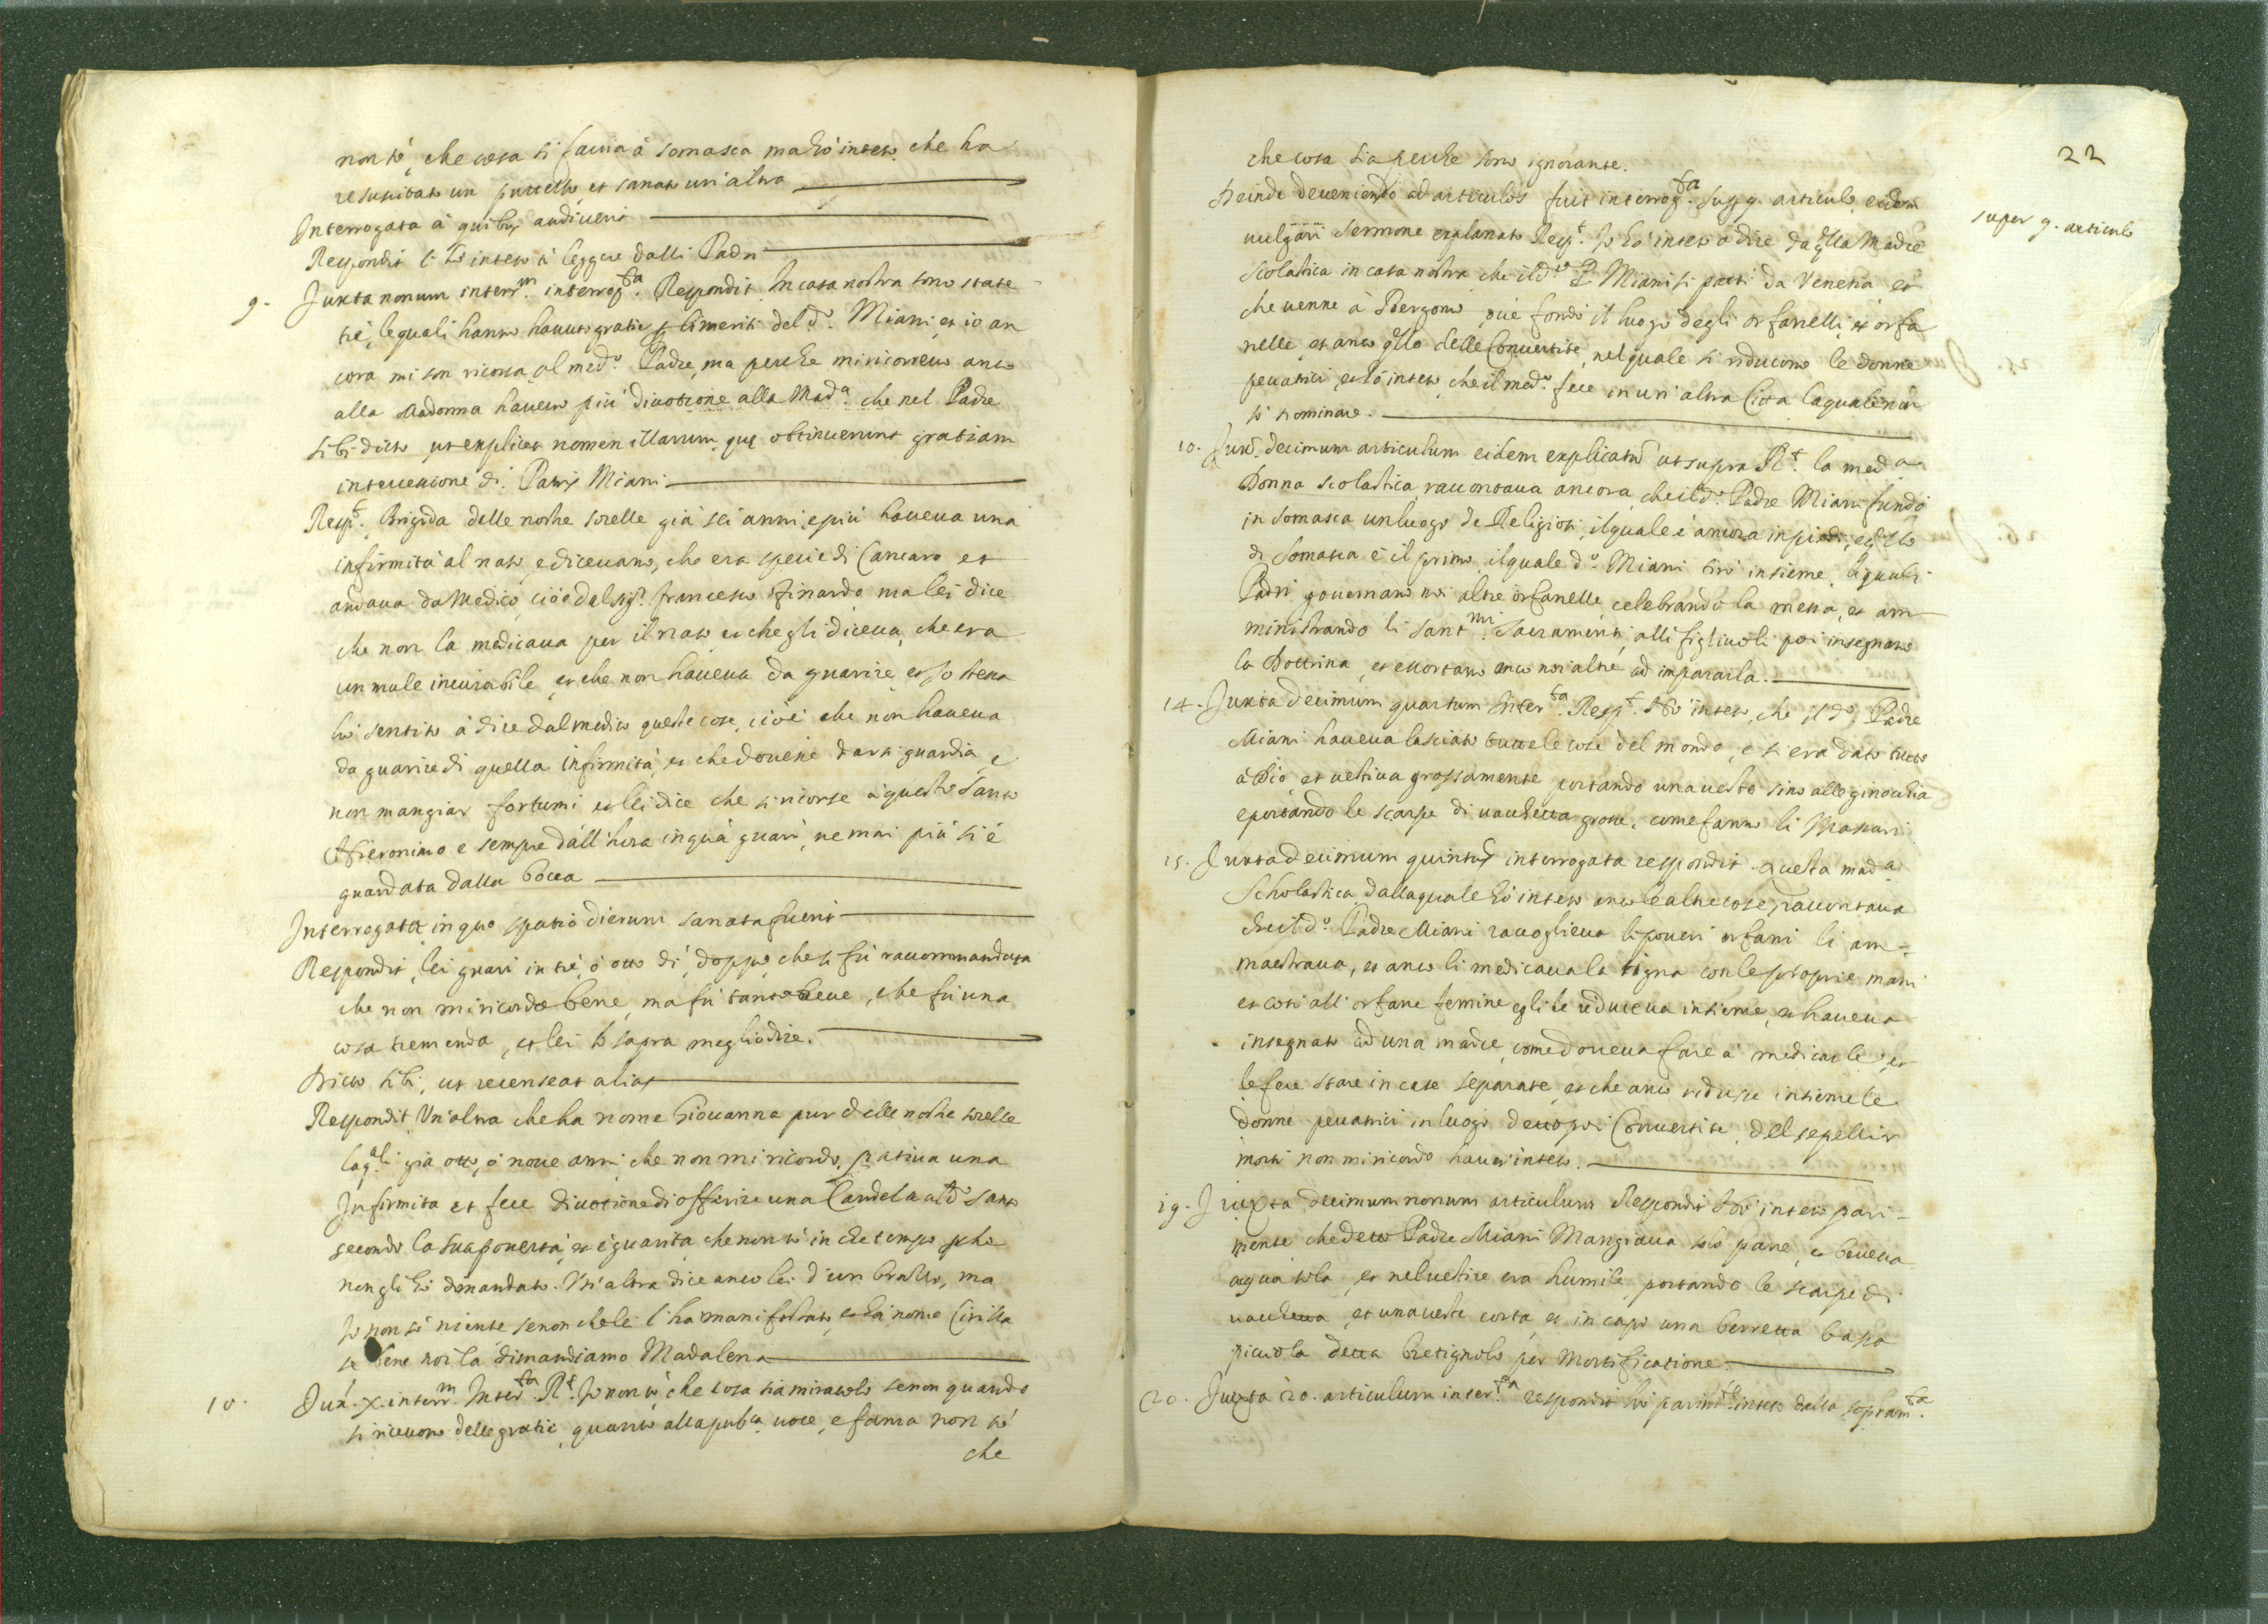 non sò, che cosa si faccia à Somasca ma hò inteso che ha
resuscitato un puttello, et sanato un'altro
Interrogata à quibus audiverit
Respondit l'hò inteso à leggere dalli Padri
9. Juxta nonum interr.m interrog.ta Respondit In casa nostra sono state
trè, le quali hanno havuto gratie p li meriti del d.o Miani, et io an
cora mi son ricorsa al med.o Padre, ma perche mi ricorrevo anco
alla Madonna havevo più divotione alla Mad.a che nel Padre
sibi dicto ut explicet nomen illarum, que obtinuerunt gratiam
intercessione di. Patris Miani
Resp.t Brigida delle nostre sorelle già sei anni, e più haveva una
infirmità al naso, e dicevano, che era specie di Cancaro et
andava da Medico, cioè dal sig.r francesco Rinardo, ma lei dice
che non la medicava per il naso, et che gli diceva, che era
un male incurabile, et che non haveva da guarire, et Io stessa
hò sentito à dire dal medico queste cose, cioè che non haveva
da guarire di quella infirmità, et che dovesse darsi guardia, e
non mangiar fortumi et lei dice che si ricorse à questo Santo
Hieronimo e sempre dall'hora in quà guarì, ne mai più si è
guardata dalla bocca
Interrogata in quo spatio dierum sanata fuerit
Respondit, lei guarì in trè, ò otto dì, doppo, che si fù raccommandata
che non mi ricordo bene, ma fù tanto breve, che fù una
cosa tremenda, et lei lo saprà meglio dire.
Dicto sibi, ut recenseat alias
Respondit, Un'altra che ha nome Giovanna pur delle nostre sorelle
la q.ali già otto, ò nove anni, che non mi ricordo, pativa una
Infirmita et fece divotione di offerire una Candela al d.o Santo
secondo la sua povertà, et è guarita che non sò in che tempo p che
non gli hò dimandato. Un'altra dice anco lei d'un brazzo, ma
Io non sò niente se non che lei l'ha manifestato, et hà nome Cirilla
se bene noi la dimandiamo Madalena
10. Jux. X. interr.m Inter.ta R.t Io non sò che cosa sia miracolo se non quando
si ricevono delle gratie, quanto alla pub.ca voce, e fama non sò
che
22
che cosa sia perche sono ignorante.
super 9. articulo
Deinde deveniendo ad articulos fuit interrog.ta sup 9. articulo, eidem
vulgari sermone explanato Resp.t Io hò inteso à dire da q.lla Madre
Scolastica in casa nostra che il d.o P. Miani si partì da Venetia et
che venne à Bergomo, ove fondò il luogo degli orfanelli, et orfa
nelle, et anco q.llo delle Convertite, nel quale si riducono le donne
peccatrici, et hò inteso, che il med.o fece in un'altra Citta la quale non
sò nominare.
10. Jux. decimum articulum eidem explicatum ut supra R.t la med.a
Donna scolastica, raccontava ancora, che il d.o Padre Miani fundò
in Somasca un luogo de Religiosi, il quale è ancora in piedi, et q.llo
di Somasca è il primo, il quale d.o Miani tirò insieme, li quali
Padri governano noi altre orfanelle, celebrando la messa, et am
ministrando li sant.mi Sacramenti, alli figliuoli poi insegnano
la Dottrina, et essortano anco noi altre, ad impararla.
14. Juxta decimum quartum Inter.ta Resp.t Hò inteso, che il d.o Padre
Miani haveva lasciato tutte le cose del mondo, e si era dato tutto
à Dio, et vestiva grossamente portando una veste sino alle ginocchia
e portando le scarpe di vacchetta grosse, come fanno li Massari
15. Juxta decimum quintum interrogata respondit. Questa mad.a
Scholastica dalla quale hò inteso anco le altre cose, raccontava
che il d.o Padre Miani raccoglieva li poveri orfani li am=
maestrava, et anco li medicava la tigna con le proprie mani
et così all'orfane femine egli le riduceva insieme, et haveva
insegnato ad una madre, come doveva fare à medicarle, et
le fece stare in case separate, et che anco ridusse insieme le
donne peccatrici in luogo detto poi Convertite, del sepellir
morti non mi ricordo haver inteso.
19. Juxta decimum nonum articulum Respondit Hò inteso pari=
mente che detto Padre Miani Mangiava solo pane, et beveva
aqua sola, et nel vestire era humile, portando le scarpe di
vacchetta, et una veste corta, et in capo una berretta bassa
piccola detta Bretignolo per mortificatione.
20. Juxta 20. articulum inter.ta respondit hò parim.te inteso dalla sopram.ta